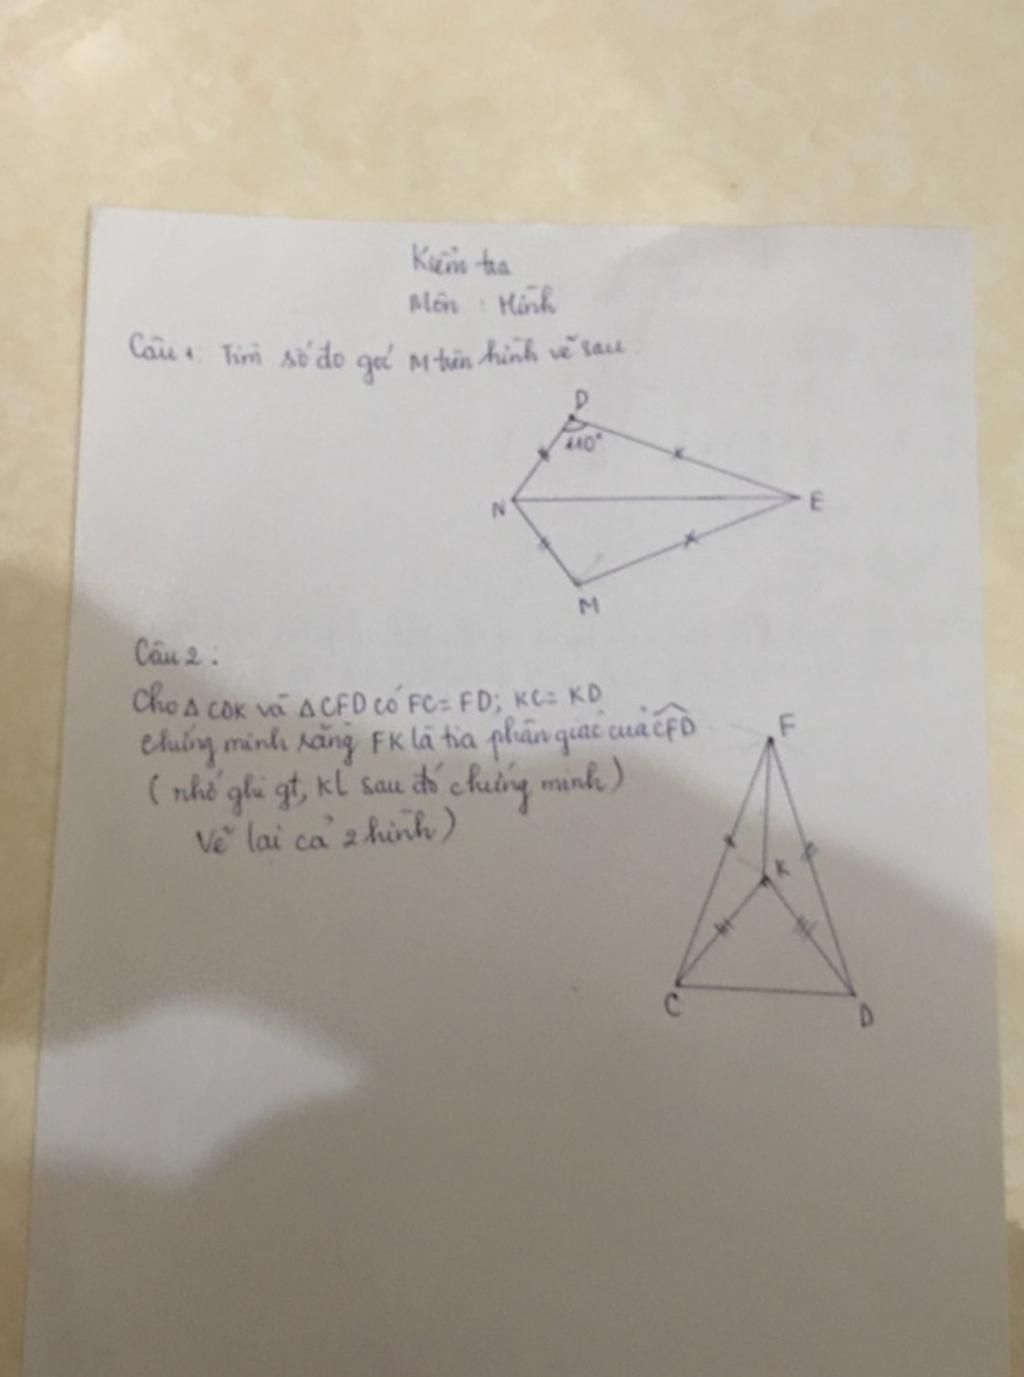 Kiểm tra
Môn : Hình
Câu 1: Tìm số đo góc M trên hình vẽ sau:
D
110°
N
E
M
Câu 2:
Cho Δ CDK và Δ CFD có FC = FD; KC = KD
chứng minh rằng FK là tia phân giác của CFD
(nhớ ghi gt, KL sau đó chứng minh)
Vẽ lại cả 2 hình)
F
K
C
D